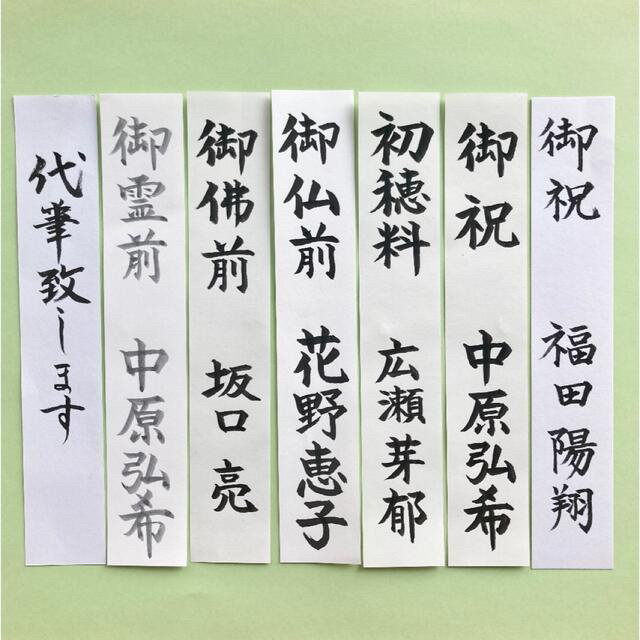 御祝 福田陽翔
御祝 中原弘希
初穂料 広瀬芽郁
御仏前 花野恵子
御佛前 坂口亮
御霊前 中原弘希
代筆致します